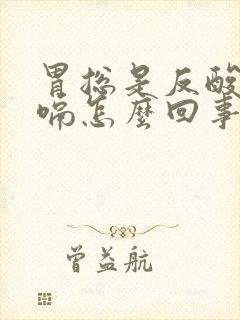 胃㧾是反酸
嗝怎麽回事
曾益航